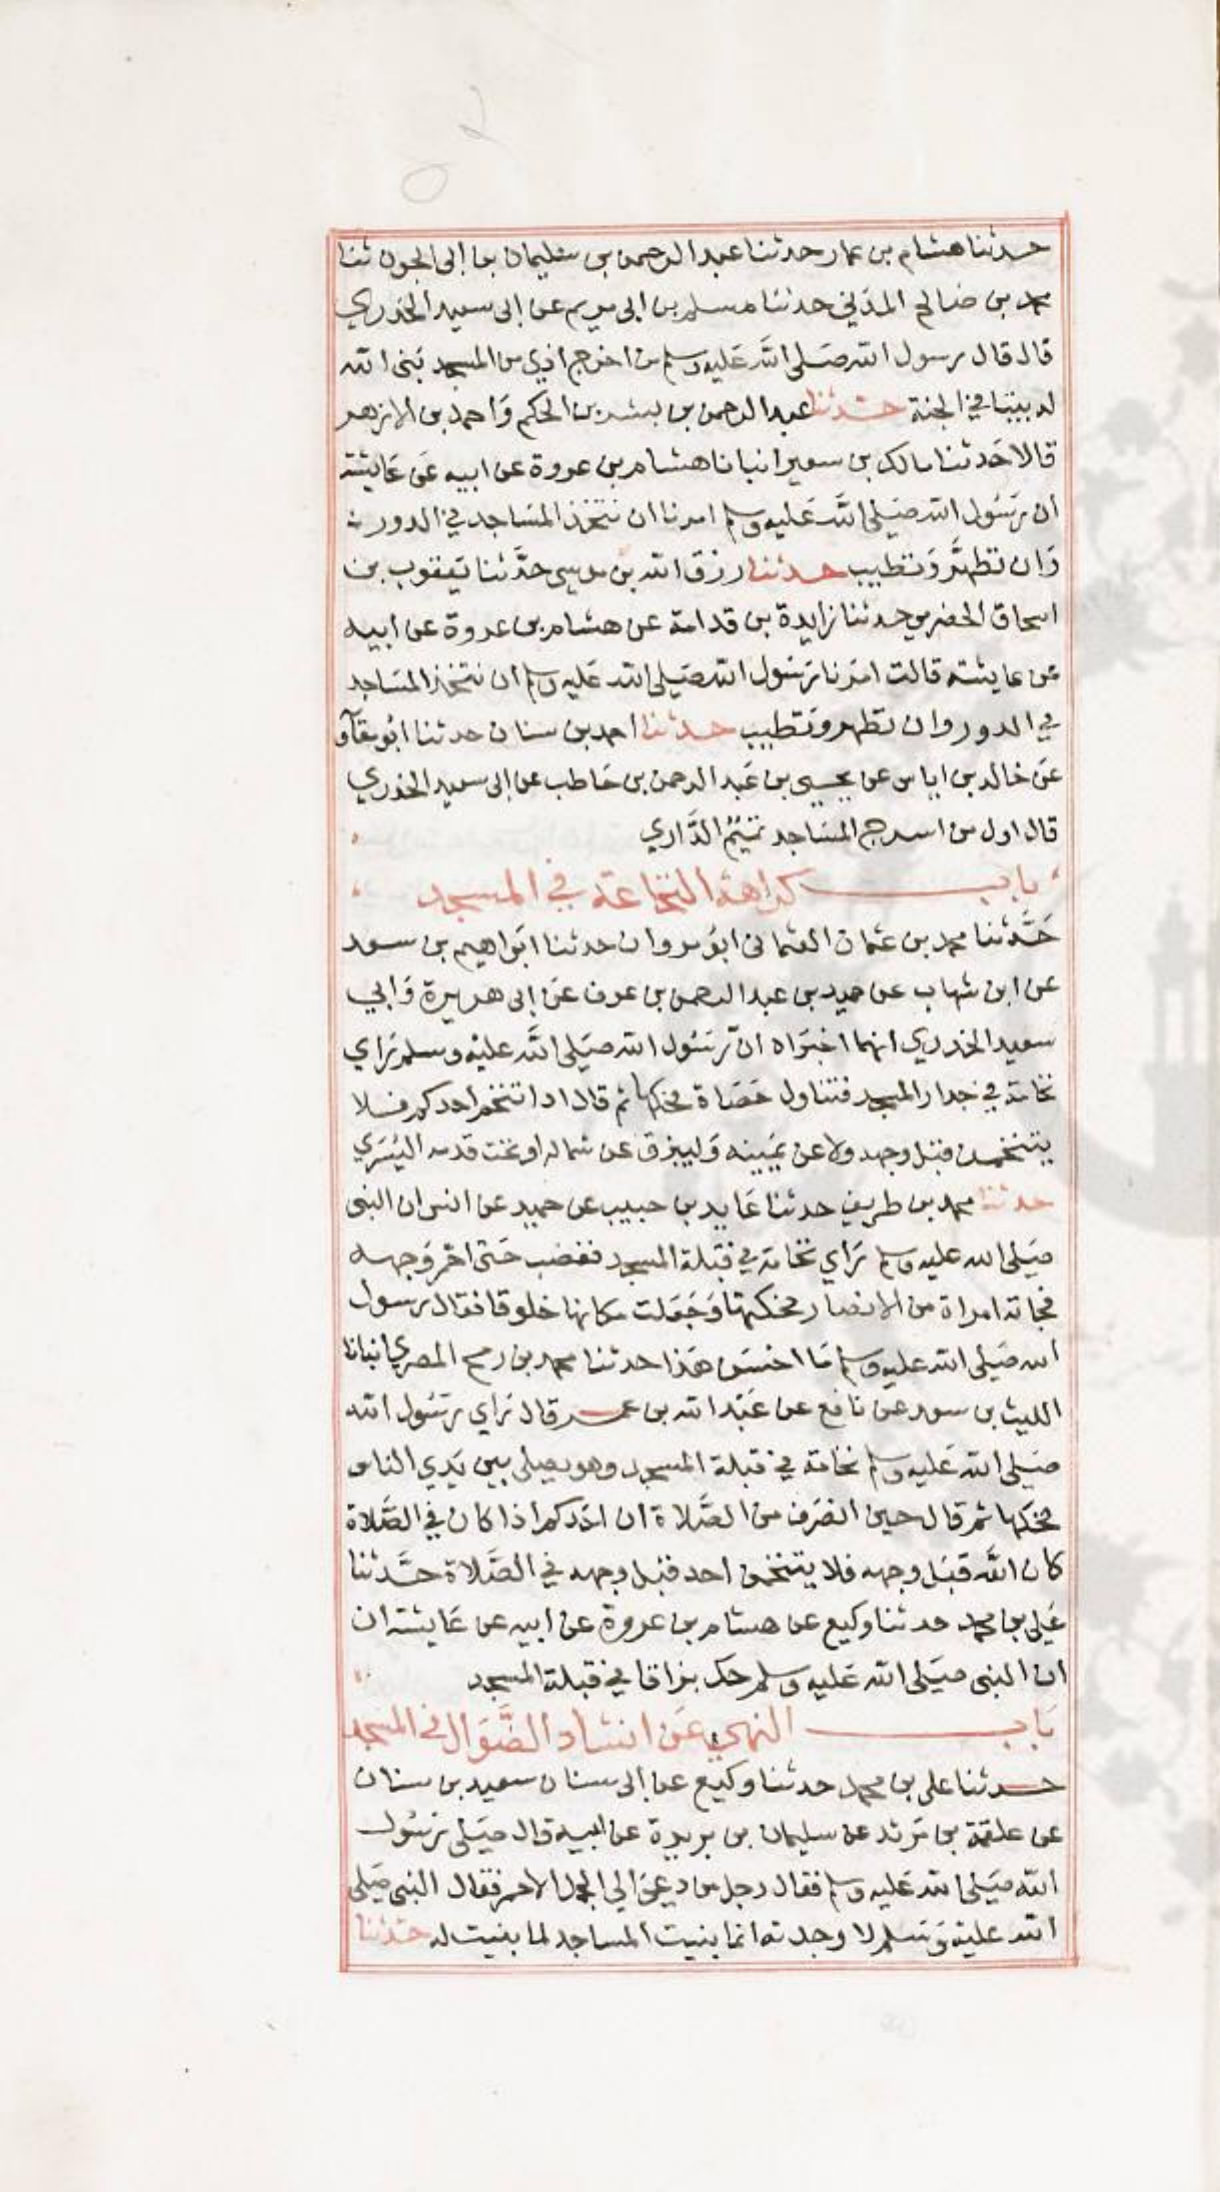 حدثنا هشام بن عمار حدثنا عبد الرحمن بن سليمان بن ابى الجون ثنا
محمد بن صالح المدني حدثنا مسلم بن ابى مريم عن ابى سعيد الخدري
قال قال رسول الله صلى الله عليه وسلم من اخرج اذي من المسجد بنى الله
له بيتا في الجنة حدثنا عبد الرحمن بن بشر بن الحكم واحمد بن الازهر
قالا حدثنا مالك بن سعير انبانا هشام بن عروة عن ابيه عن عايشة
ان رسول الله صلى الله عليه وسلم امرنا ان نتخذ المساجد في الدور
وان تطهر وتطيب حدثنا رزق الله بن موسى حدثنا يعقوب بن
اسحاق الحضرمي حدثنا زايدة بن قدامة عن هشام بن عروة عن ابيه
عن عايشة قالت امرنا رسول الله صلى الله عليه وسلم ان نتخذ المساجد
في الدور وان تطهر وتطيب حدثنا احمد بن سنان حدثنا ابو معاوية
عن خالد بن اياس عن يحيى بن عبد الرحمن بن حاطب عن ابى سعيد الخدري
قال اول من اسرج المساجد تميم الداري
باب كراهة النخاعة في المسجد
حدثنا محمد بن عثمان العثمانى ابو مروان حدثنا ابراهيم بن سعد
عن ابن شهاب عن حميد بن عبد الرحمن بن عوف عن ابى هريرة وابي
سعيد الخدري انهما اخبراه ان رسول الله صلى الله عليه وسلم راي
نخامة في جدار المسجد فتناول حصاة فحكها ثم قال اذا تنخم احدكم فلا
يتنخمن قبل وجهه ولا عن يمينه وليبزق عن شماله او تحت قدمه اليسرى
حدثنا محمد بن طريف حدثنا عايد بن حبيب عن حميد عن انس ان النبى
صلى الله عليه وسلم راي نخامة في قبلة المسجد فغضب حتى احمر وجهه
فجاته امراة من الانصار فحكتها وجعلت مكانها خلوقا فقال رسول
الله صلى الله عليه وسلم ما احسن هذا حدثنا محمد بن رمح المصري انبانا
الليث بن سعد عن نافع عن عبد الله بن عمر قال راي رسول الله
صلى الله عليه وسلم نخامة في قبلة المسجد وهو يصلى بين يدي الناس
فحكها ثم قال حين انصرف من الصلاة ان احدكم اذا كان في الصلاة
كان الله قبل وجهه فلا يتنخمن احد قبل وجهه في الصلاة حدثنا
على بن محمد حدثنا وكيع عن هشام بن عروة عن ابيه عن عايشة ان
ان النبى صلى الله عليه وسلم حك بزاقا في قبلة المسجد
باب النهي عن انشاد الضوال في المسجد
حدثنا على بن محمد حدثنا وكيع عن ابى سنان سعيد بن سنان
عن علقمة بن مرثد عن سليمان بن بريدة عن ابيه قال صلى رسول
الله صلى الله عليه وسلم فقال رجل من دعى الي الجمل الاحمر فقال النبى صلى
الله عليه وسلم لا وجدته انما بنيت المساجد لما بنيت له حدثنا